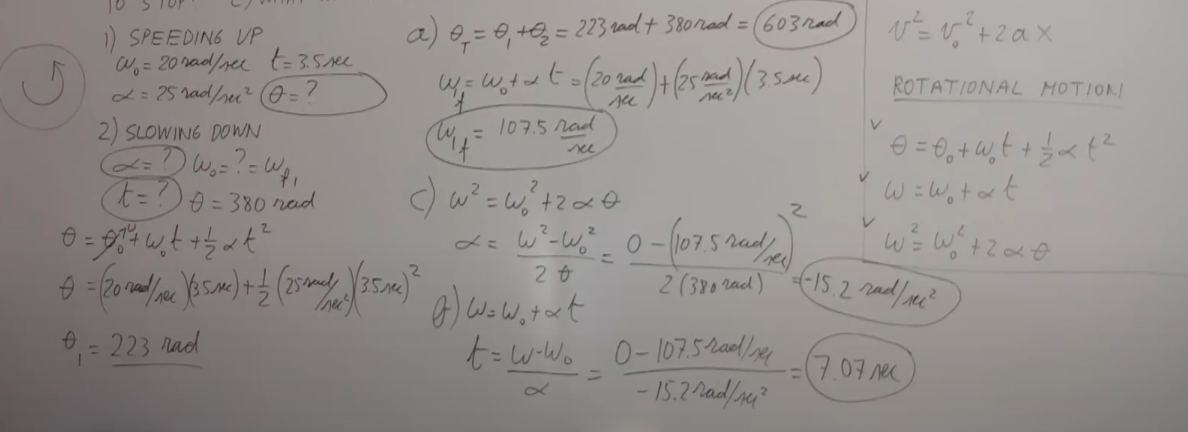 TO STOP?
1) SPEEDING UP
ω₀ = 20 rad/sec t = 3.5 sec
α = 25 rad/sec² θ = ?
2) SLOWING DOWN
α = ? ω₀ = ? = ωf₁
t = ? θ = 380 rad
θ = θ₀ + ω₀t + ½αt²
θ = (20 rad/sec)(3.5 sec) + ½(25 rad/sec²)(3.5 sec)²
θ₁ = 223 rad
a) θT = θ₁ + θ₂ = 223 rad + 380 rad = 603 rad
ω₁f = ω₀ + αt = (20 rad/sec) + (25 rad/sec²)(3.5 sec)
ω₁f = 107.5 rad/sec
c) ω² = ω₀² + 2αθ
α = (ω² - ω₀²)/2θ = (0 - (107.5 rad/sec)²)/2(380 rad) = -15.2 rad/sec²
b) ω = ω₀ + αt
t = (ω - ω₀)/α = (0 - 107.5 rad/sec)/(-15.2 rad/sec²) = 7.07 sec
v² = v₀² + 2ax
ROTATIONAL MOTION!
✓ θ = θ₀ + ω₀t + ½αt²
✓ ω = ω₀ + αt
✓ ω² = ω₀² + 2αθ